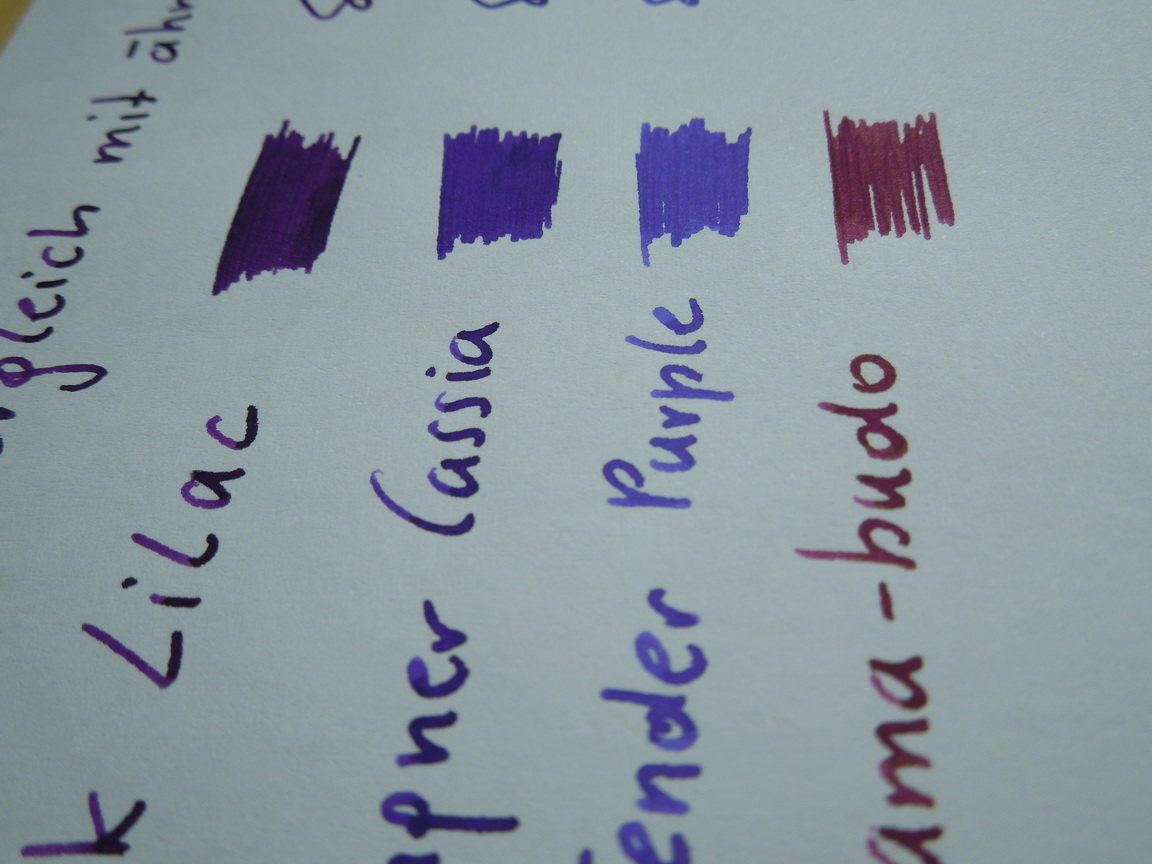 gleich mit ähn
k Lilac
pner Cassia
ender Purple
ama-budo